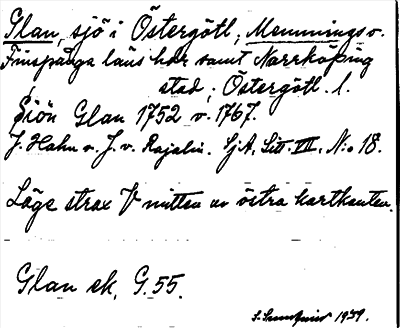 Glan, sjö i Östergötl; Memmings o.
Finspånga läns här samt Norrköping
stad; Östergötl. l.
Siön Glan 1752 o. 1767.
J. Hahn o. J. v. Rajalin. SjA. Litt. VII. N:o 18.
Läge strax V mitten av östra kartkanten.
Glan ek. G. 55.
1939.